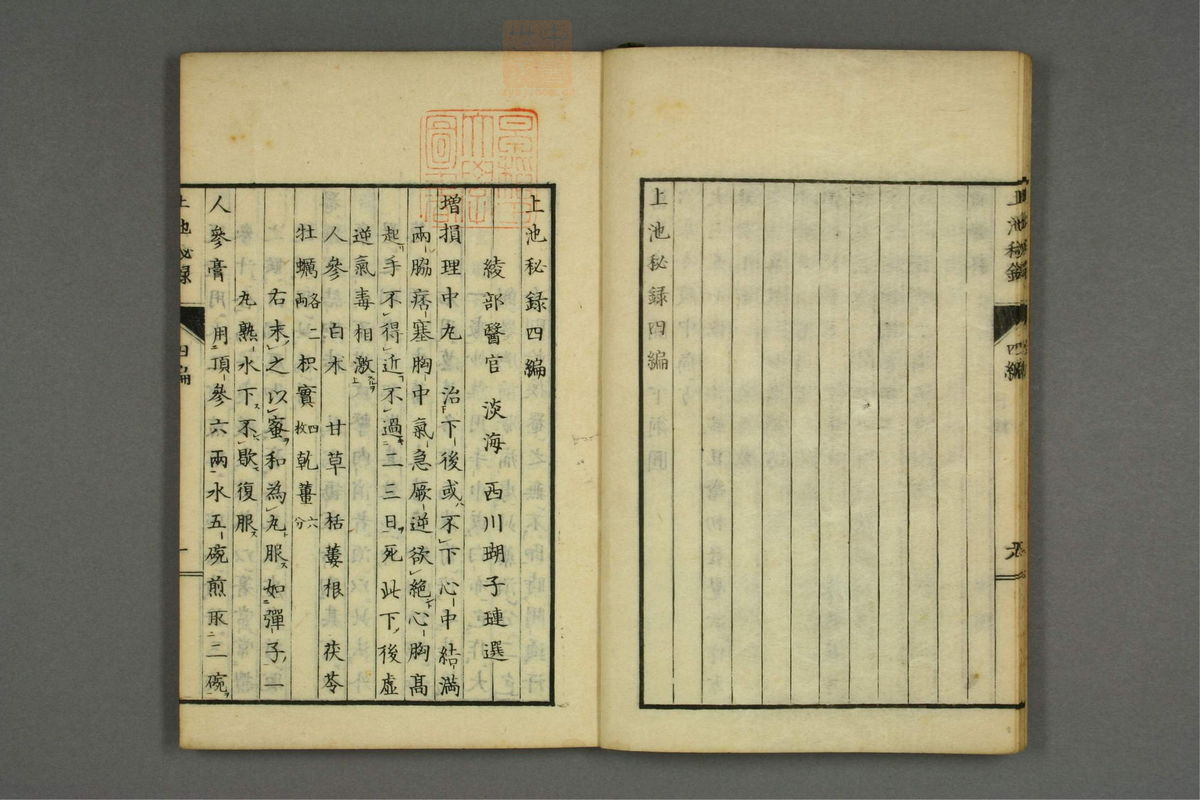 上池秘録
四編
上池秘録四編
上池秘録四編
綾部醫官 淡海 西川瑚子璉選
増損理中丸 治下後或不下心中結滿
兩脇痞塞胸中氣急厥逆欲絶心胸高
起手不得近不過二三旦死此下後虚
逆氣毒相激
人參 白朮 甘草 栝蔞根 茯苓
牡蠣 兩 枳實 四枚 乾薑 六分
右末之以蜜和為丸服如彈子一
丸熟水下不歇復服
人參膏 用頂參六兩水五碗煎取三碗
上池秘録
四編
一
早稲田大學圖書